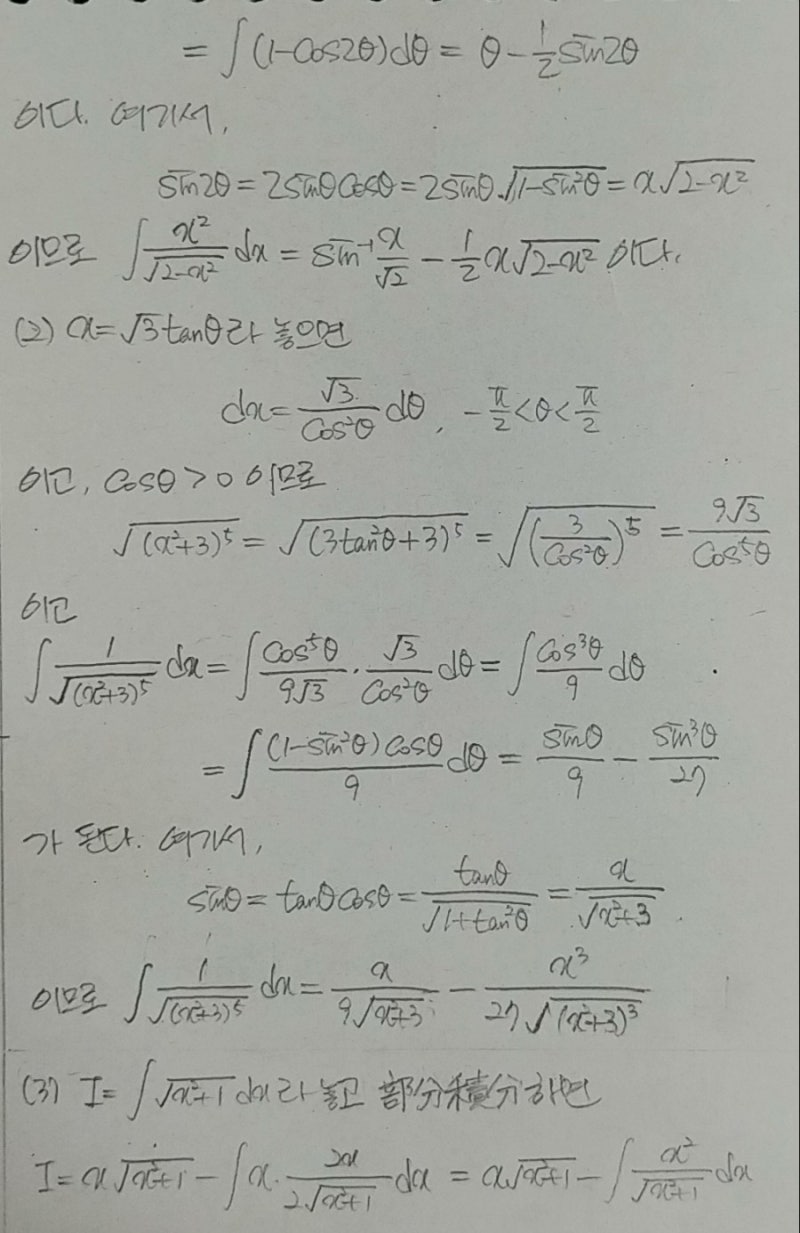 = ∫(1-cos2θ)dθ = θ - 1/2 sin2θ
이다. 여기서,
sin2θ = 2sinθcosθ = 2sinθ·√(1-sin²θ) = x√(2-x²)
이므로 ∫ x²/√(2-x²) dx = sin⁻¹ x/√2 - 1/2 x√(2-x²) 이다.
(2) x=√3tanθ라 놓으면
dx = √3/cos²θ dθ, -π/2<θ<π/2
이고, cosθ>0 이므로
√(x²+3)⁵ = √(3tan²θ+3)⁵ = √(3/cos²θ)⁵ = 9√3/cos⁵θ
이고
∫ 1/√(x²+3)⁵ dx = ∫ cos⁵θ/9√3 · √3/cos²θ dθ = ∫ cos³θ/9 dθ
= ∫ (1-sin²θ)cosθ/9 dθ = sinθ/9 - sin³θ/27
가 된다. 여기서,
sinθ = tanθcosθ = tanθ/√(1+tan²θ) = x/√(x²+3).
이므로 ∫ 1/√(x²+3)⁵ dx = x/9√(x²+3) - x³/27√(x²+3)³
(3) I= ∫√(x²+1) dx라 놓고 部分積分하면
I = x√(x²+1) - ∫x· 2x/2√(x²+1) dx = x√(x²+1) - ∫ x²/√(x²+1) dx